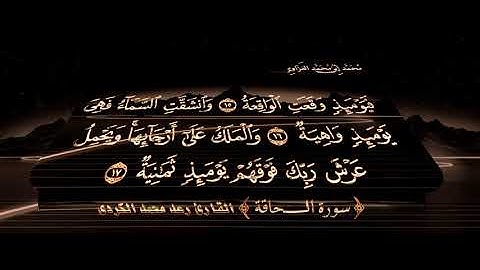 محمد إبن محمد الغزاوي
فَيَوْمَئِذٍ وَقَعَتِ الْوَاقِعَةُ ١٥ وَانشَقَّتِ السَّمَاءُ فَهِيَ
يَوْمَئِذٍ وَاهِيَةٌ ١٦ وَالْمَلَكُ عَلَىٰ أَرْجَائِهَا ۚ وَيَحْمِلُ
عَرْشَ رَبِّكَ فَوْقَهُمْ يَوْمَئِذٍ ثَمَانِيَةٌ ١٧
﴿ سورة الحاقة ﴾ القارئ رعد محمد الكردي